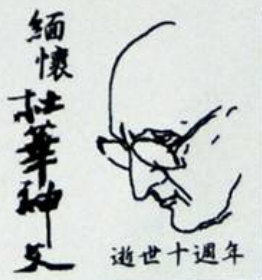 緬懷杜華神父
逝世十週年